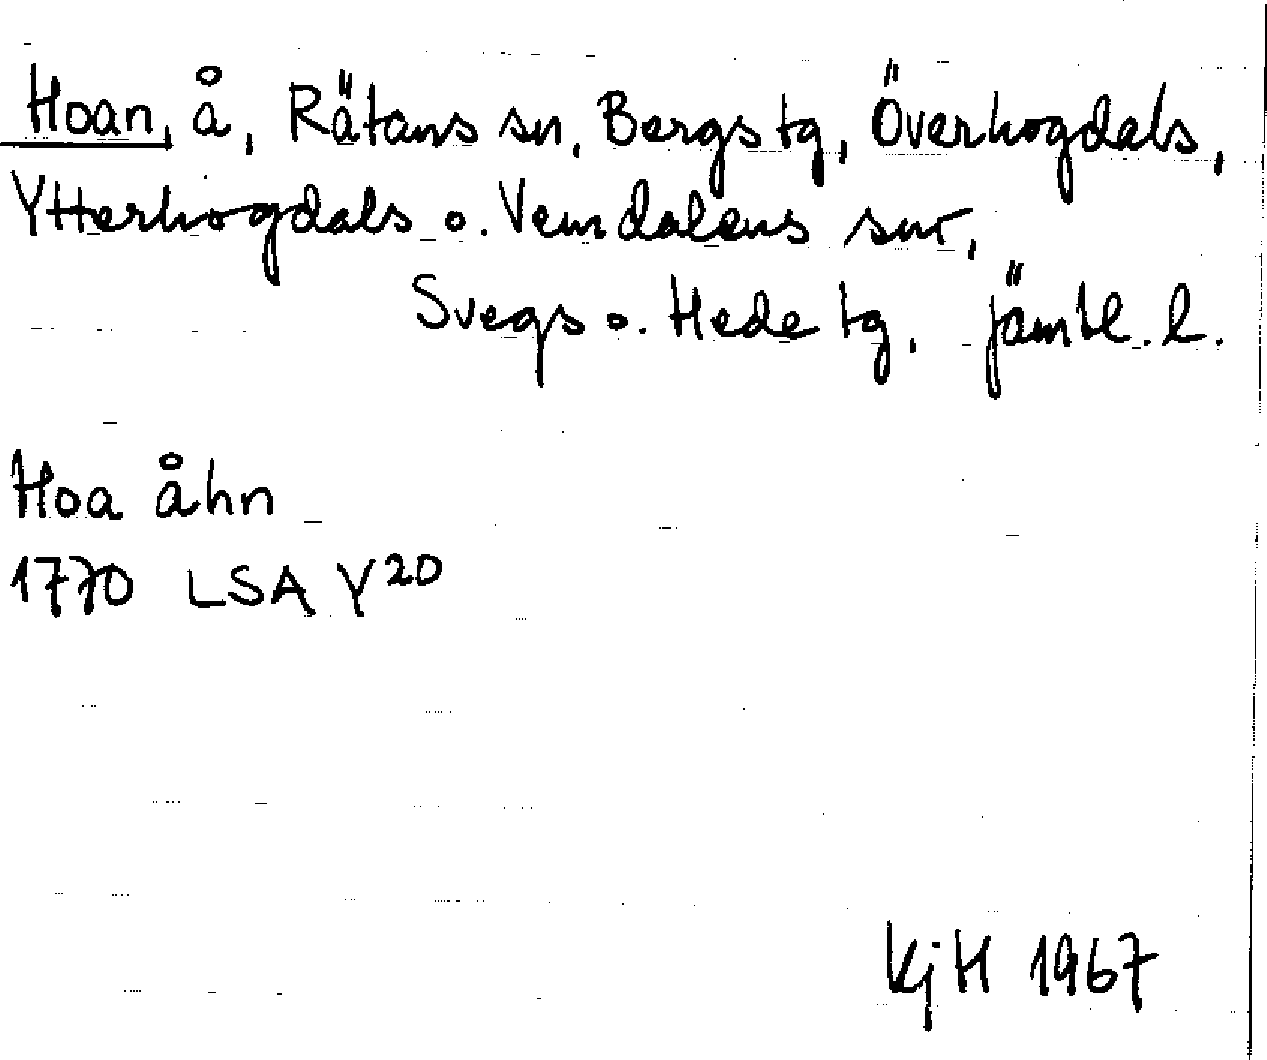 Hoan, å, Rätans sn, Bergs tg, Överhogdals,
Ytterhogdals o. Vemdalens snr,
Svegs o. Hede tg, Jämtl. l.
Hoa åhn
1770 LSA Y20
KjH 1967